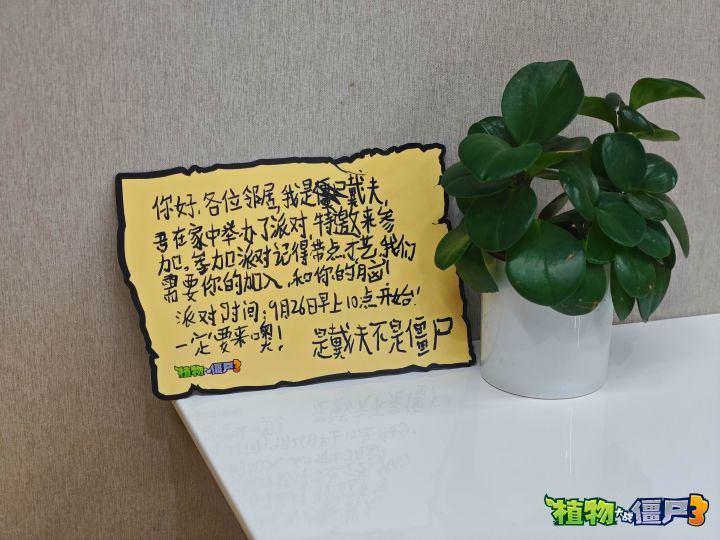 你好,各位邻居,我是戴夫,
吾在家中举办了派对,特邀来参
加。参加派对记得带点才艺,我们
需要你的加入,和你的脑!
派对时间:9月26日早上10点开始!
一定要来噢! 是戴夫不是僵尸
植物大战僵尸3
植物大战僵尸3